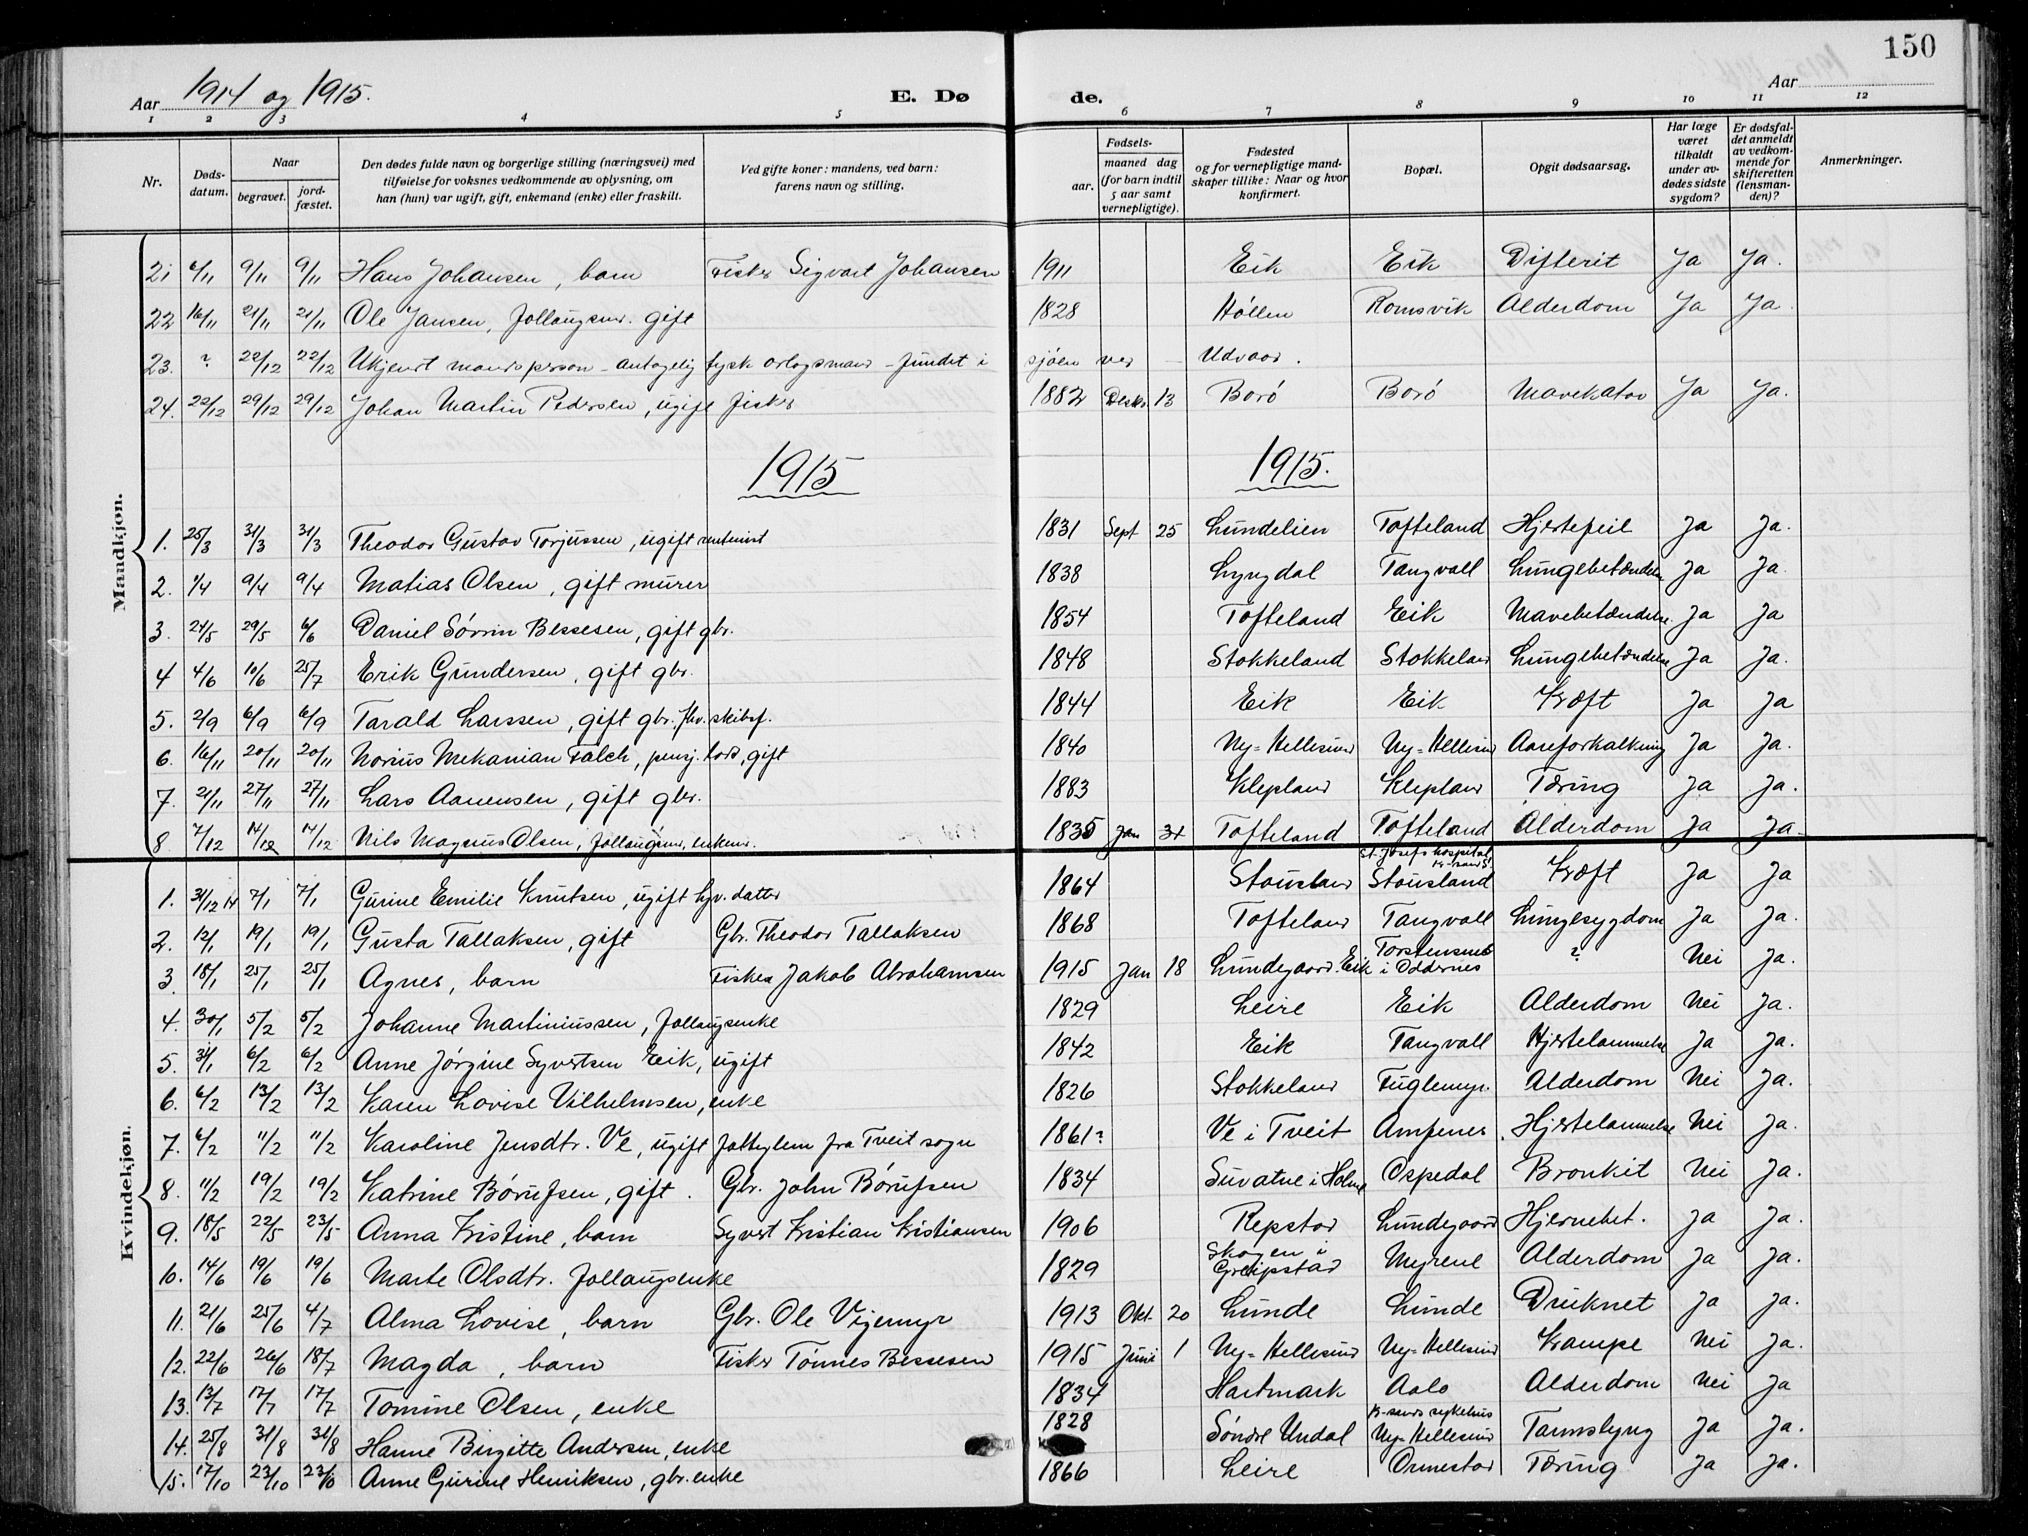 150
Aar 1914 og 1915.
E. Døde.
Aar
1 2 3 4 5 6 7 8 9 10 11 12
Nr.
Dødsdatum.
Naar
begravet.
jordfæstet.
Den dødes fulde navn og borgerlige stilling (næringsvei) med tilføielse for voksnes vedkommende av oplysning, om han (hun) var ugift, gift, enkemand (enke) eller fraskilt.
Ved gifte koner: mandens, ved barn: farens navn og stilling.
Fødsels-
aar.
maaned dag (for barn indtil 5 aar samt vernepligtige).
Fødested og for vernepligtige mandskaper tillike: Naar og hvor konfirmert.
Bopæl.
Opgit dødsaarsag.
Har læge været tilkaldt under avdødes sidste sygdom?
Er dødsfaldet anmeldt av vedkommende for skifteretten (lensmanden)?
Anmerkninger.
Mandkjøn.
21 6/11 9/11 9/11 Hans Johansen, barn Fisker Sigvart Johansen 1911 Eik Eik Difterit Ja Ja.
22 16/11 21/11 21/11 Ole Jansen, follaugsm. gift 1828 Høllen Romsvik Alderdom Ja Ja.
23. ? 22/12 22/12 Ukjendt mandsperson - antagelig tysk orlogsmand - fundet i sjøen ved Udvaar.
24. 22/12 29/12 29/12 Johan Martin Pedersen, ugift fisker 1882 Desbr 13 Borø Borø Mavekatar Ja Ja.
1915 1915.
1. 25/3 31/3 31/3 Theodor Gustav Torjussen, ugift rentenist 1831 Sept 25 Lundelien Tofteland Hjertefeil Ja Ja.
2. 1/4 9/4 9/4 Matias Olsen, gift murer 1838 Lyngdal Tangvall Lungebetændelse Ja Ja.
3. 24/5 29/5 6/6 Daniel Sørrin Bessesen, gift gbr. 1854 Tofteland Eik Mavebetændelse. Ja Ja
4 4/6 10/6 25/7 Erik Gundersen, gift gbr. 1848 Stokkeland Stokkeland Lungebetændelse Ja Ja.
5. 2/9 6/9 6/9 Tarald Larssen, gift gbr. fhv. skibsf. 1844 Eik Eik Kræft Ja Ja
6. 16/11 20/11 20/11 Norius Mekanian Falch, pensj. lods, gift 1840 Ny-Hellesund Ny-Hellesund Aareforkalkning Ja Ja.
7. 21/11 27/11 27/11 Lars Aanensen, gift gbr. 1883 Klepland Klepland Tæring Ja Ja.
8. 7/12 14/12 14/12 Nils Magnus Olsen, follaugsm, enkem. 1835 Jan 31 Tofteland Tofteland Alderdom Ja Ja.
Kvindekjøn.
1. 31/12 14 7/1 7/1 Gurine Emilie Knutsen, ugift gbr. datter 1864 Stousland St. Josefs hospital Kr-sand S. Stousland Kræft Ja Ja
2. 12/1 19/1 19/1 Gusta Tallaksen, gift Gbr. Theodor Tallaksen 1868 Tofteland Tangvall Lungesygdom Ja Ja.
3. 18/1 25/1 25/1 Agnes, barn Fisker Jakob Abrahamsen 1915 Jan 18 Lundegaard. Eik Torstensnes i Oddernes ? Nei Ja.
4. 30/1 5/2 5/2 Johanne Martiniussen, follaugsenke 1829 Leire Eik Alderdom Nei Ja.
5. 31/1 6/2 6/2 Anne Jørgine Syvertsen Eik, ugift 1842 Eik Tangvall Hjertelammelse Ja Ja.
6. 6/2 13/2 13/2 Karen Lovise Vilhelmsen, enke 1826 Stokkeland Fuglemyr. Alderdom Nei Ja.
7. 6/2 11/2 11/2 Karoline Jensdtr. Ve, ugift fattiglem fra Tveit sogn 1861? Ve i Tveit Ampenes. Hjertelammelse Nei Ja.
8. 11/2 19/2 19/2 Katrine Børufsen, gift. Gbr. John Børufsen 1834 Suvatne i Holme Ospedal Bronkit Nei Ja.
9. 18/5 22/5 23/5 Anna Kristine, barn Syvert Kristian Kristiansen 1906 Repstad Lundegaard Hjernebet. Ja Ja.
10. 14/6 19/6 19/6 Marte Olsdtr. follaugsenke 1829 Skogen i Greipstad Myrene Alderdom Ja Ja.
11. 21/6 25/6 4/7 Alma Lovise, barn Gbr. Ole Vigemyr 1913 Okt. 20 Lunde Lunde Druknet Ja Ja.
12. 22/6 26/6 18/7 Magda, barn Fisker Tønnes Bessesen 1915 Juni 1 Ny-Hellesund Ny-Hellesund Krampe Nei Ja.
13. 13/7 17/7 17/7 Tomine Olsen, enke 1834 Hartmark Aalo Alderdom Nei Ja
14. 25/8 31/8 31/8 Hanne Birgitte Andersen, enke 1828 Søndre Undal Kr-sands sykehus Ny-Hellesund Tarmslyng Ja Ja.
15. 17/10 23/10 23/10 Anne Gurine Henriksen, gbr. enke 1866 Leire Ormestad Tæring Ja Ja.